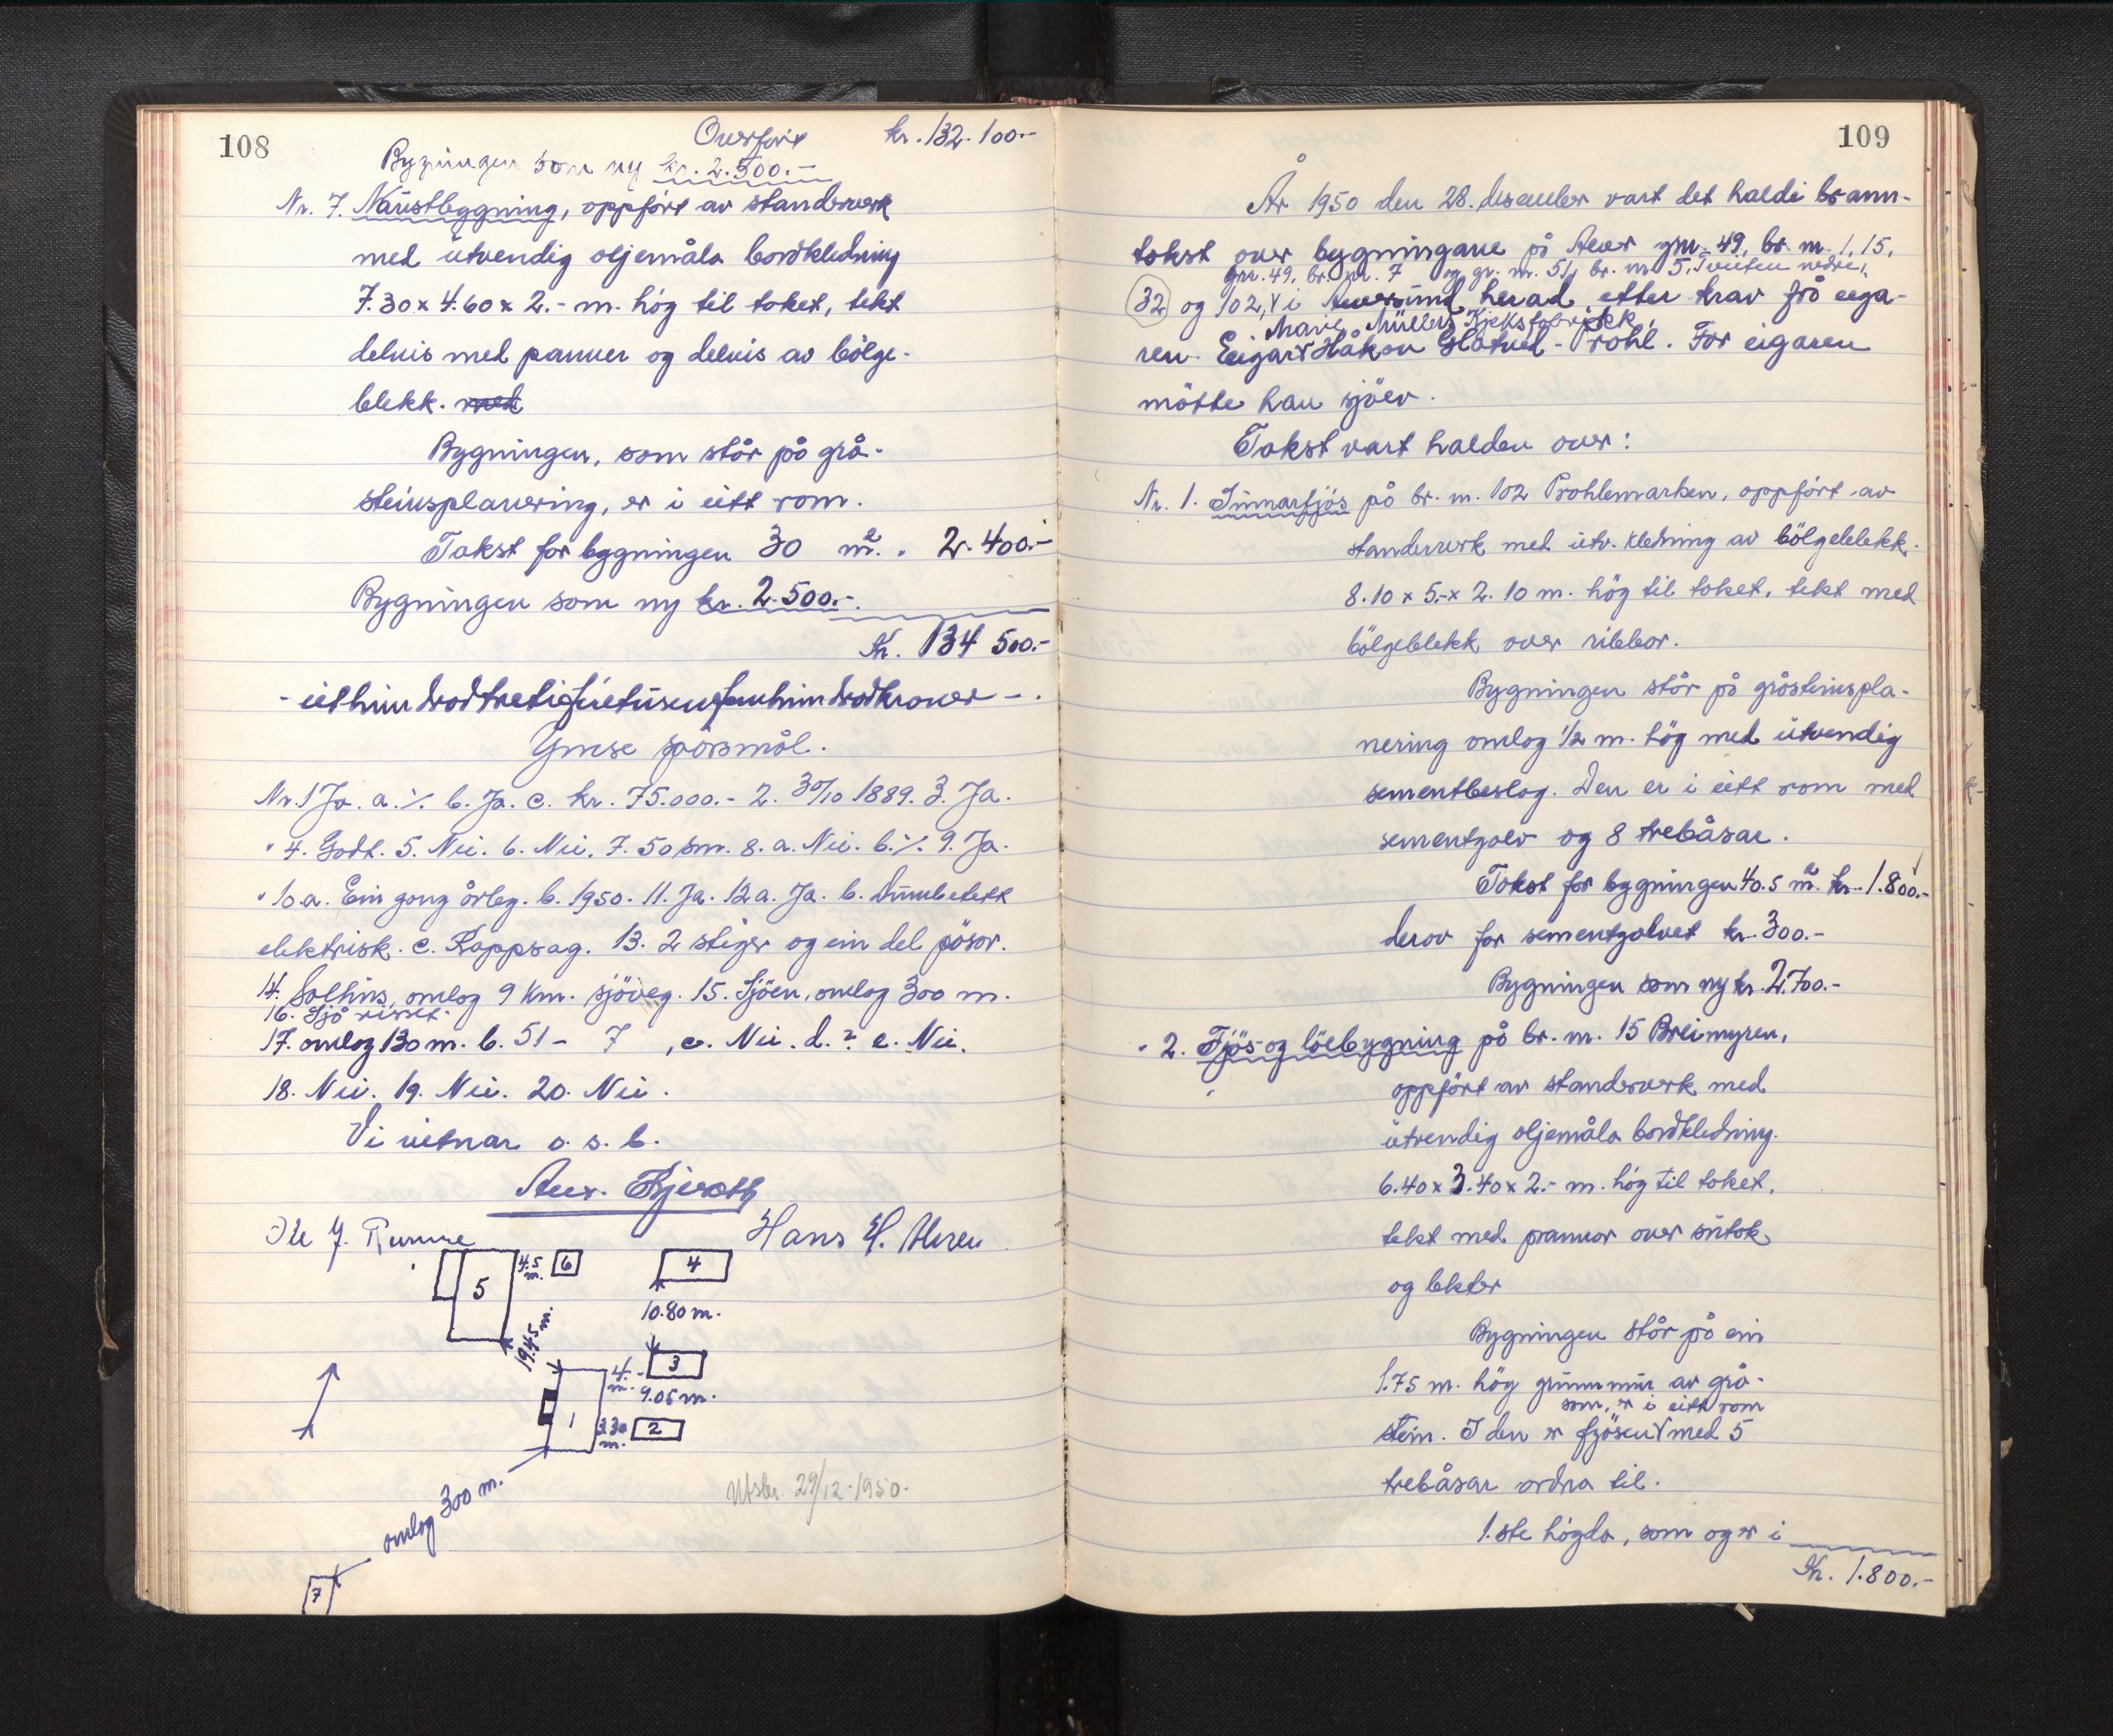 108
Overført kr. 132.100.-
Bygningen som ny kr. 2.500.-
Nr. 7. Naustbygning, oppført av standerverk
med utvendig oljemåla bordkledning
7.30 x 4.60 x 2.- m. høg til taket, tekt
delvis med panner og delvis av bølge-
blekk. med
Bygningen, som står på grå-
steinsplanering, er i eitt rom.
Takst for bygningen 30 m². " 2.400.-
Bygningen som ny kr. 2.500.-
Kr. 134 500.-
- eithundradtrettifiretusenfemhundradkroner -.
Ymse spörsmål.
Nr. 1 Ja. a. ./. b. Ja. c. kr. 75.000.- 2. 30/10 1889. 3. Ja.
" 4. Godt. 5. Nei. 6. Nei. 7. 50 sm. 8. a. Nei. b. ./. 9. Ja.
" 10.a. Ein gong årleg. b. 1950. 11. Ja. 12 a. Ja. b.
elektrisk. c. Kappsag. 13. 2 stiger og ein del pösar.
14. omlag 9 km. sjöveg. 15. Sjöen, omlag 300 m.
16. Sjå risset.
17. omlag 130 m. b. 51 - 7, c. Nei. d. ? e. Nei.
18. Nei. 19. Nei. 20. Nei.
Vi vitnar o. s. b.
Ole J. Hans H.
5
4.5 m.
6
4
10.80 m.
19.45 m.
3
4. m.-
9.05 m.
1
3.30 m.
2
omlag 300 m.
7
Utskr. 29/12-1950.
109
År 1950 den 28. desember vart det haldi brann-
takst over bygningane på Alver gnr. 49, br. nr. 1, 15,
gnr. 49, br. nr. 7 og gr. nr. 51, br. nr. 5, Tveiten nedre,
32 og 102, i Alversund herad etter krav frå eiga-
Marie Müllers Kjeksfabrikk,
ren. Eigar Håkon Glatved-Prahl. For eigaren
mötte han sjölv.
Takst vart halden over:
Nr. 1. Sumarfjös på br. nr. 102 Prahlemarken, oppfört av
standerverk med utv. kledning av bölgeblekk.
8.10 x 5.- x 2.10 m. hög til taket, tekt med
bölgeblekk over ribbor.
Bygningen står på gråsteinspla-
nering omlag 1/2 m. hög med utvendig
sementbeslag. Den er i eitt rom med
sementgolv og 8 trebåsar.
Takst for bygningen 40.5 m². kr. 1.800.-
derav for sementgolvet kr. 300.-
Bygningen som ny kr. 2.700.-
" 2. Fjös og löebygning på br. nr. 15 Breimyren,
oppfört av standerverk med
utvendig oljemåla bordkledning.
6.40 x 3.40 x 2.- m. hög til taket,
tekt med pannor over sutak
og lekter
Bygningen står på ein
1.75 m. hög grunnmur av grå-
som, er i eitt rom
stein. I den er fjösen med 5
trebåsar ordna til.
1.ste högda, som og er i
Kr. 1.800.-